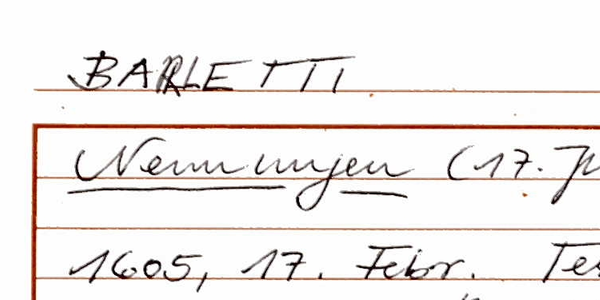 BARLETTI
Nennungen (17. J
1605, 17. Febr. Tes